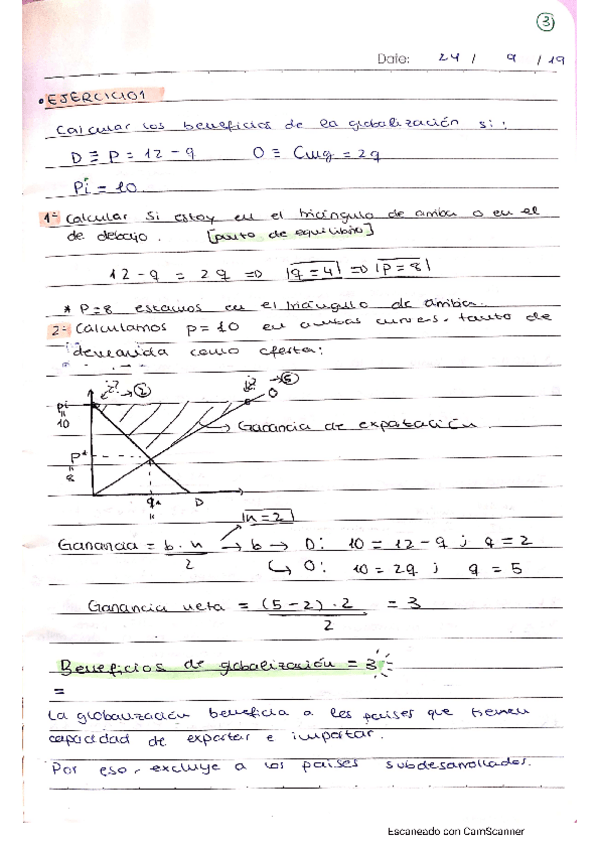 3
Date: 24 / 9 / 19
• EJERCICIO 1
Calcular los beneficios de la globalización si:
D ≡ P = 12 - q   O ≡ Cmg = 2q
Pi = 10
1º Calcular si estoy en el triángulo de arriba o en el
de debajo. [punto de equilibrio]
12 - q = 2q => |q = 4| => |P = 8|
* P=8 estamos en el triángulo de arriba.
2º Calculamos p = 10 en ambas curvas, tanto de
demanda como oferta:
¿? → 2   ¿? → 5
O
Pi
=
10
→ Ganancia de exportación
P*
=
8
q*   D
=
|h = 2|
Ganancia = b · h / 2 → b → D: 10 = 12 - q ; q = 2
↳ O: 10 = 2q ; q = 5
Ganancia neta = (5 - 2) · 2 / 2 = 3
Beneficios de globalización = 3
=
La globalización beneficia a los países que tienen
capacidad de exportar e importar.
Por eso, excluye a los países subdesarrollados.
Escaneado con CamScanner